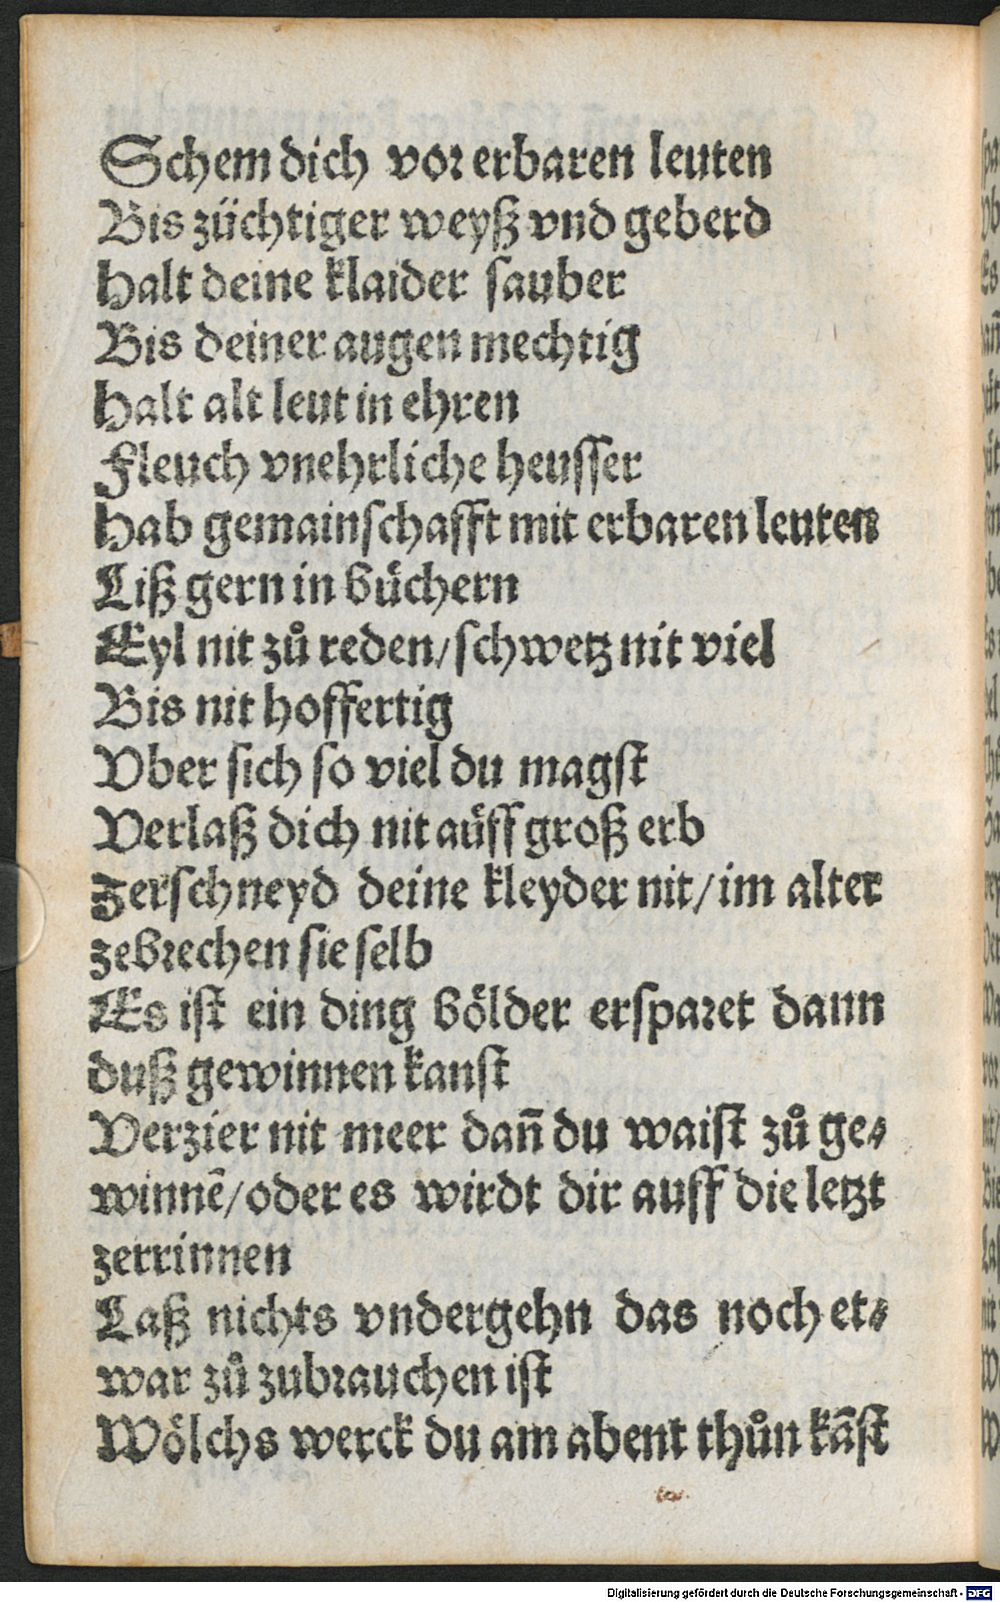 Schem dich vor erbaren leuten
Bis züchtiger weyß vnd geberd
Halt deine klaider sauber
Bis deiner augen mechtig
Halt alt leut in ehren
Fleuch vnehrliche heusser
Hab gemainschafft mit erbaren leuten
Liß gern in büchern
Eyl nit zů reden/schwetz nit viel
Bis nit hoffertig
Vber sich so viel du magst
Verlaß dich nit auff groß erb
Zerschneyd deine kleyder nit/im alter
zebrechen sie selb
Es ist ein ding bölder ersparet dann
duß gewinnen kanst
Verzier nit meer dañ du waist zů ge-
winnē/oder es wirdt dir auff die letzt
zerrinnen
Laß nichts vndergehn das noch et-
war zů zubrauchen ist
Wölchs werck du am abent thůn kāst
Digitalisierung gefördert durch die Deutsche Forschungsgemeinschaft - DFG